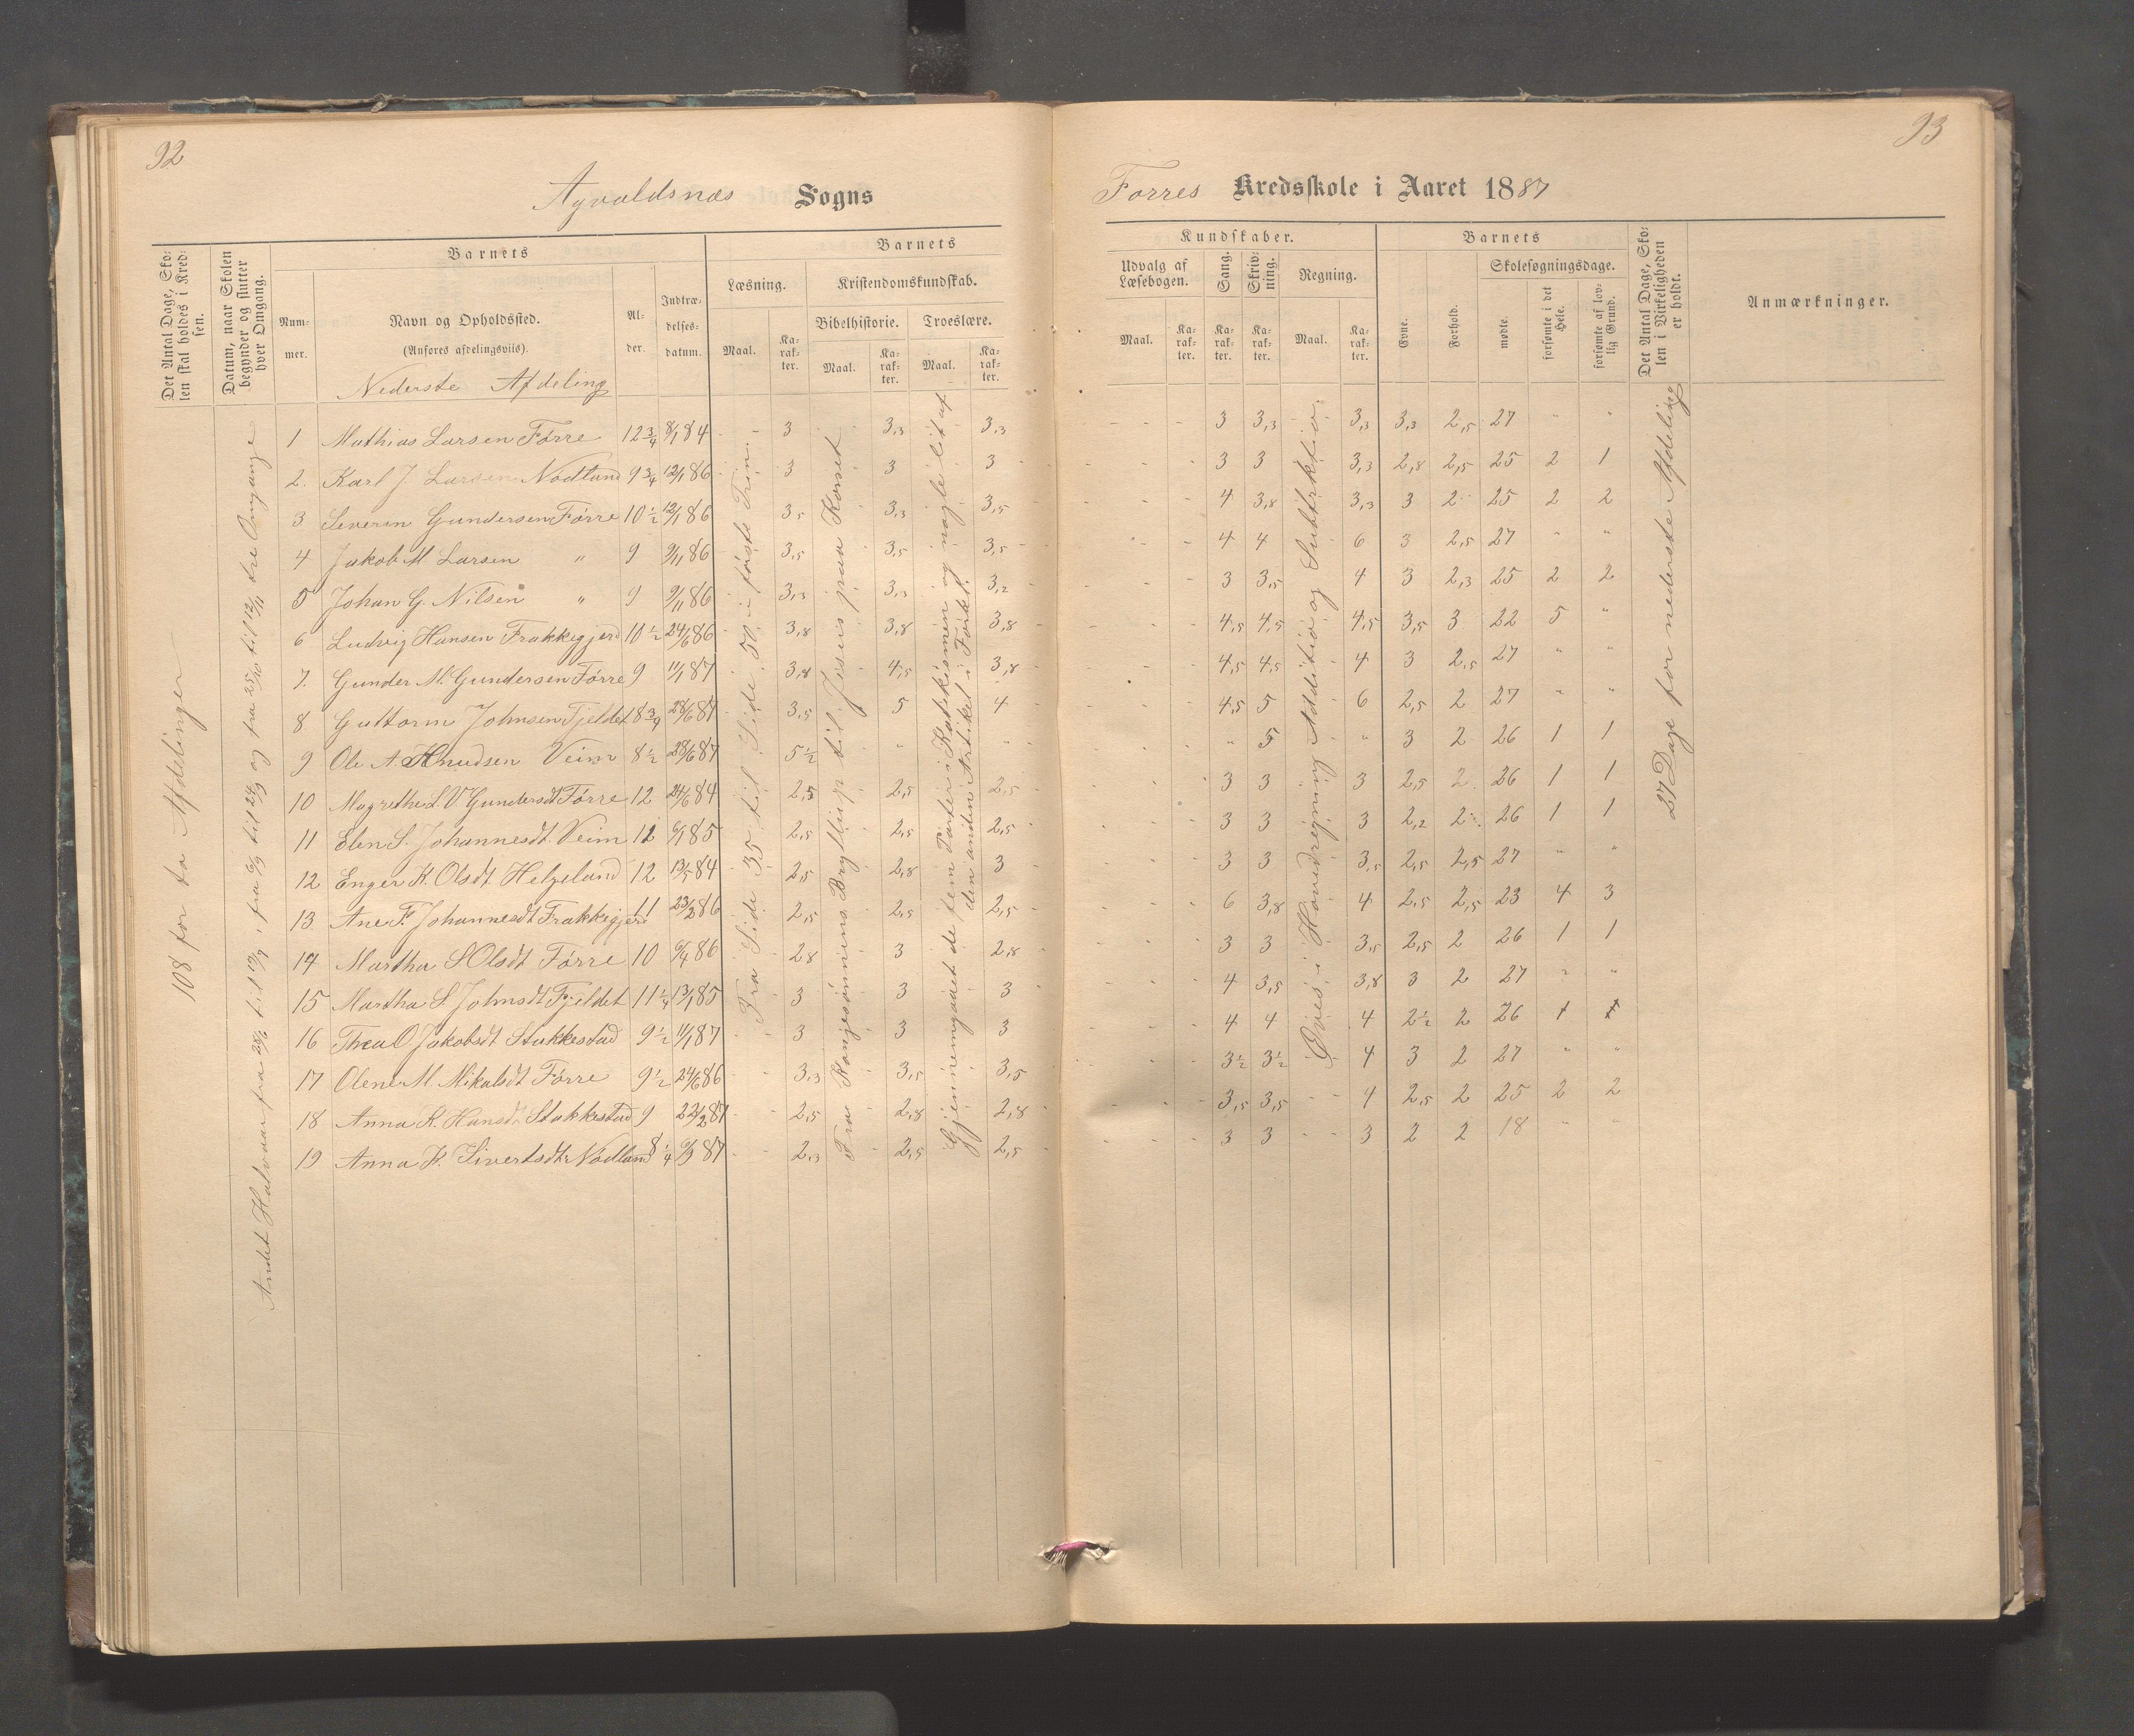 92
Agvaldsnæs Sogns
Det Antal Dage, Sko-
len skal holdes i Kred-
sen.
Datum, naar Skolen
begynder og slutter
hver Omgang.
Barnets
Num-
mer.
Navn og Opholdssted.
(Anføres afdelingsviis).
Al-
der.
Indtræ-
delses-
datum.
Barnets
Læsning.
Kristendomskundskab.
Bibelhistorie.
Troeslære.
Maal.
Ka-
rak-
ter.
Maal.
Ka-
rak-
ter.
Maal.
Ka-
rak-
ter.
Nederste Afdeling
1 Mathias Larsen Førre 12 3/4 8/1 84 3 3,3 3,3
2. Karl J. Larsen Nodland 9 3/4 12/1 86 3 3 3
3 Severin Gundersen Førre 10 1/2 12/1 86 3,5 3,3 3,5
4 Jakob M Larsen " 9 9/11 86 3,5 3,5 3,5
5 Johan G. Nilsen " 9 9/11 86 3,3 3,3 3,2
6 Ludvig Hansen Frakkegjerd 10 1/2 24/6 86 3,8 3,8 3,8
7. Gunder M. Gundersen Førre 9 11/1 87 3,8 4,5 3,8
8 Guttorm Johnsen Fjeldet 8 3/4 28/6 87 3,5 5 4
9 Ole A. Knudsen Veim 8 1/2 28/6 87 5 1/2 " "
10 Magrethe L. V Gundersdt Førre 12 24/6 84 2,5 2,5 2,5
11 Elen S. Johannesdt. Veim 12 6/1 85 2,5 2,5 2,5
12 Enger K. Olsdt. Helgeland 12 13/5 84 2,5 2,8 3
13. Ane F. Johannesdt Frakkegjerd 11 23/2 86 2,5 2,5 2,5
14 Martha S Olsdt Førre 10 6/4 86 2,8 3 2,8
15 Martha S. Johnsdt Fjeldet 11 1/4 13/1 85 3 3 3
16 Thea O Jakobsdt Stakkestad 9 1/2 11/1 87 3 3 3
17 Olene M. Mikalsdt Førre 9 1/2 24/6 86 3,3 3,5 3,5
18 Anna K. Hansdt. Stakkestad 9 22/2 87 2,5 2,8 2,8
19 Anna K. Sivertsdt. Nodland 8 1/4 6/9 87 2,3 2,5 2,5
108 for to Afdelinger
Andet Halvaar fra 28/6 til 12/7, fra 6/9 til 24/9 og fra 25/10 til 12/11 tre Omgange
Fra Side 35 til Side 50 i første Trin.
Fra Kongesønnens Bryllup til Jesus paa Korset
Gjennemgaaet de fem Parter i Katekismen og nogle lit af
den anden Artikel i Forkl.
93
Førres Kredsskole i Aaret 1887
Kundskaber.
Udvalg af
Læsebogen.
Sang.
Skriv-
ning.
Regning.
Maal.
Ka-
rak-
ter.
Ka-
rak-
ter.
Ka-
rak-
ter.
Maal.
Ka-
rak-
ter.
Barnets
Evne.
Forhold.
Skolesøgningsdage.
mødte.
forsømte i det
Hele.
forsømte af lov-
lig Grund.
Det Antal Dage, Sko-
len i Virkeligheden
er holdt.
Anmærkninger.
3 3,3 3,3 3,3 2,5 27 " "
3 3 3,3 2,8 2,5 25 2 1
4 3,8 3,3 3 2 25 2 2
4 4 6 3 2,5 27 " "
3 3,5 4 3 2,3 25 2 2
4,5 4,5 4,5 3,5 3 22 5 "
4,5 4,5 4 3 2,5 27 " "
4,5 5 6 2,5 2 27 " "
" 5 " 3 2 26 1 1
3 3 3 2,5 2 26 1 1
3 3 3 2,2 2 26 1 1
3 3 3,5 2,5 2,5 27 " "
6 3,8 4 2,5 2,5 23 4 3
3 3 3,5 2,5 2 26 1 1
4 3,5 3,8 3 2 27 " "
4 4 4 2 1/2 2 26 1 1
3 1/2 3 1/2 4 3 2 27 " "
3,5 3,5 4 2,5 2 25 2 2
3 3 3 2 2 18 " "
Øves i Hovedregning Additio og Subtrktion.
27 Dage for nederste Afdeling